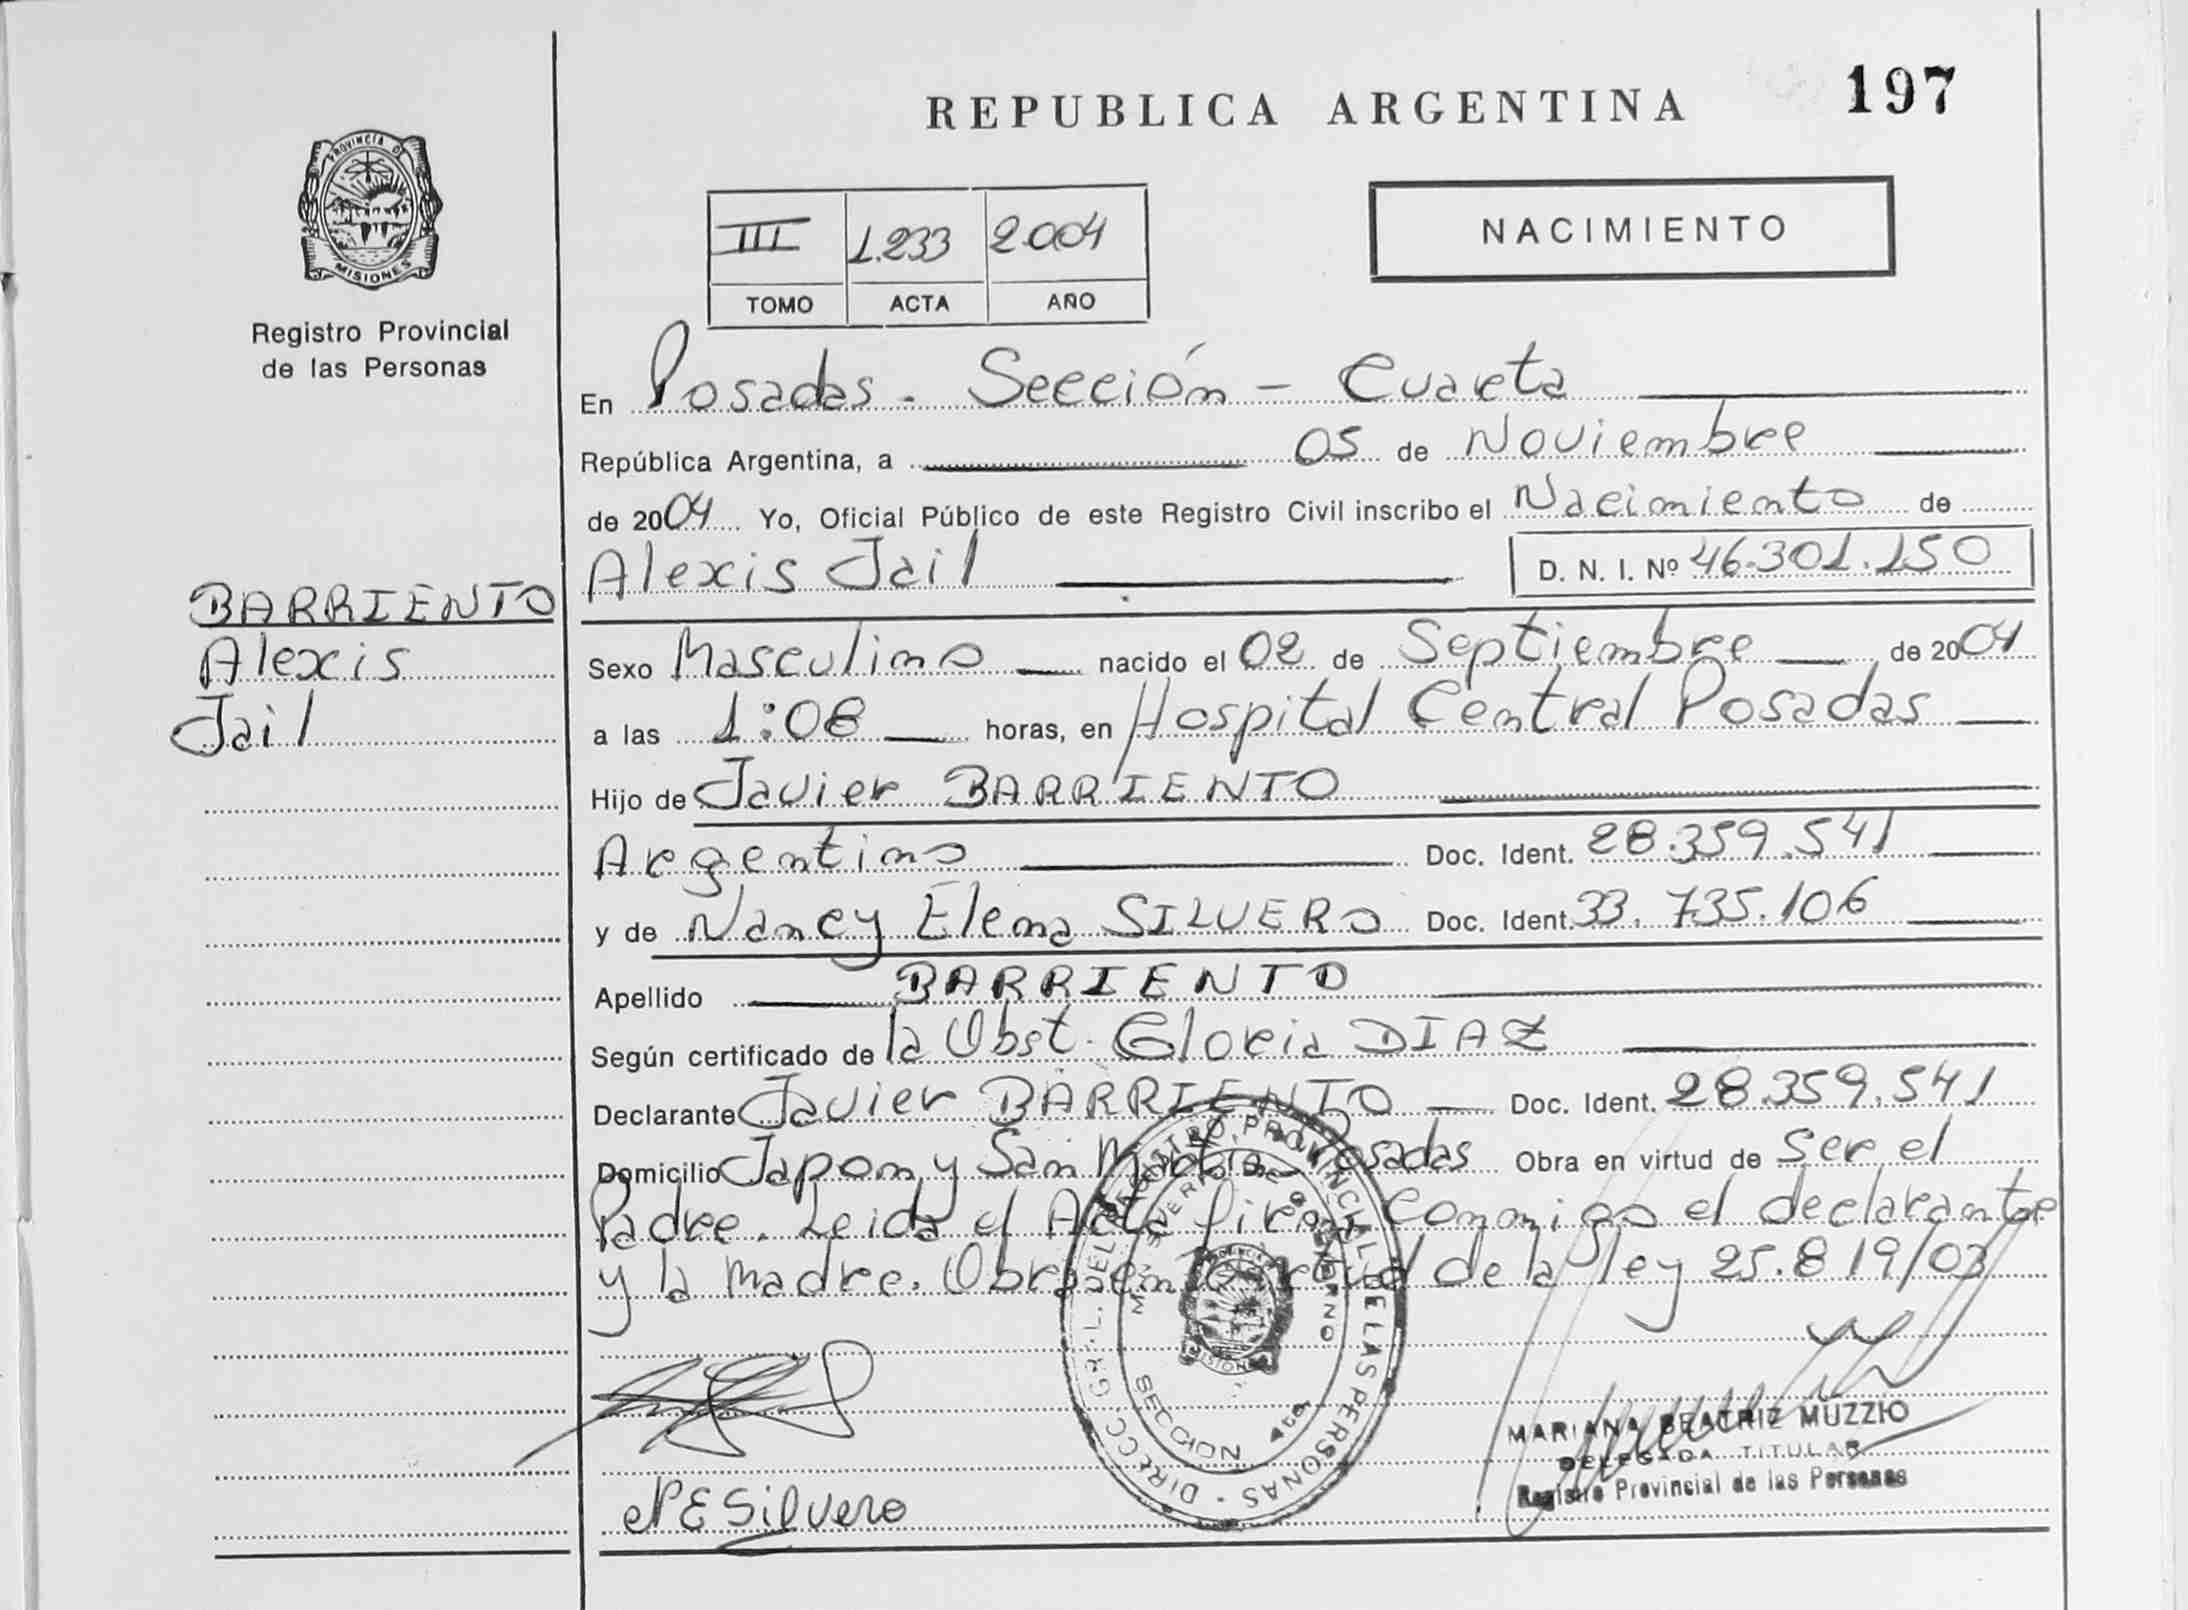 REPUBLICA ARGENTINA
197
PROVINCIA DE
MISIONES
Registro Provincial
de las Personas
NACIMIENTO
III 1.233 2004
TOMO ACTA AÑO
En Posadas - Sección - Cuarta
República Argentina, a 05 de Noviembre
de 2004 Yo, Oficial Público de este Registro Civil inscribo el Nacimiento de
Alexis Jail D. N. I. Nº 46.301.150
BARRIENTO
Alexis
Jail
Sexo Masculino nacido el 02 de Septiembre de 2004
a las 1:08 horas, en Hospital Central Posadas
Hijo de Javier BARRIENTO
Argentino Doc. Ident. 28.359.541
y de Nancy Elena SILVERO Doc. Ident. 33.735.106
Apellido BARRIENTO
Según certificado de la Obst. Gloria DIAZ
Declarante Javier BARRIENTO Doc. Ident. 28.359.541
Domicilio Japon y San Posadas Obra en virtud de Ser el
Padre. Leida el Acta firma Conmigo el declarante
y la madre. Obra en virtud de la ley 25.819/03
REGISTRO PROVINCIAL DE LAS PERSONAS
GOBIERNO
SECCION 4ta
NESilvero
MARIANA BEATRIZ MUZZIO
DELEGADA TITULAR
Registro Provincial de las Personas